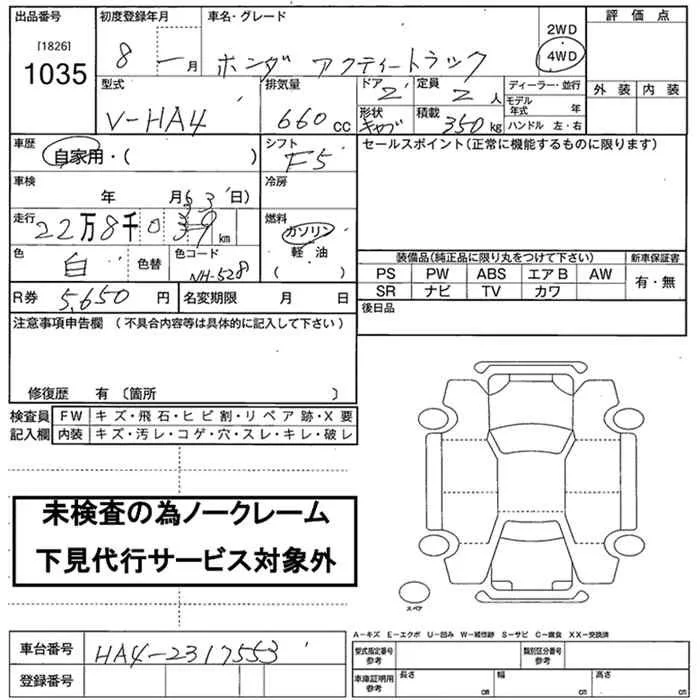 出品番号
[1826]
1035
初度登録年月
8 - 月
車名・グレード
ホンダ アクティートラック
2WD
4WD
評価点
外装 内装
型式
V-HA4
排気量
660cc
ドア
2
定員
2人
形状
キャブ
積載
350kg
ディーラー・並行
モデル年式 年
ハンドル 左・右
車歴
自家用・( )
シフト
F5
セールスポイント(正常に機能するものに限ります)
車検
年 月 日)
冷房
走行
22万8千039km
燃料
ガソリン
軽・油
( )
色
白
色替
色コード
NH-528
R券
5,650円
名変期限 月 日
装備品(純正品に限り丸をつけて下さい)
新車保証書
PS PW ABS エアB AW
SR ナビ TV カワ
有・無
後日品
注意事項申告欄 (不具合内容等は具体的に記入して下さい)
修復歴 有〔箇所 〕
検査員記入欄
FW キズ・飛石・ヒビ割・リペア跡・X要
内装 キズ・汚レ・コゲ・穴・スレ・キレ・破レ
未検査の為ノークレーム
下見代行サービス対象外
スペア
A-キズ E-エクボ U-凹み W-補修跡 S-サビ C-腐食 XX-交換済
車台番号
HA4-2317553
登録番号
型式指定番号
参考
類別区分番号
参考
車庫証明用
参考
長さ cm
幅 cm
高さ cm